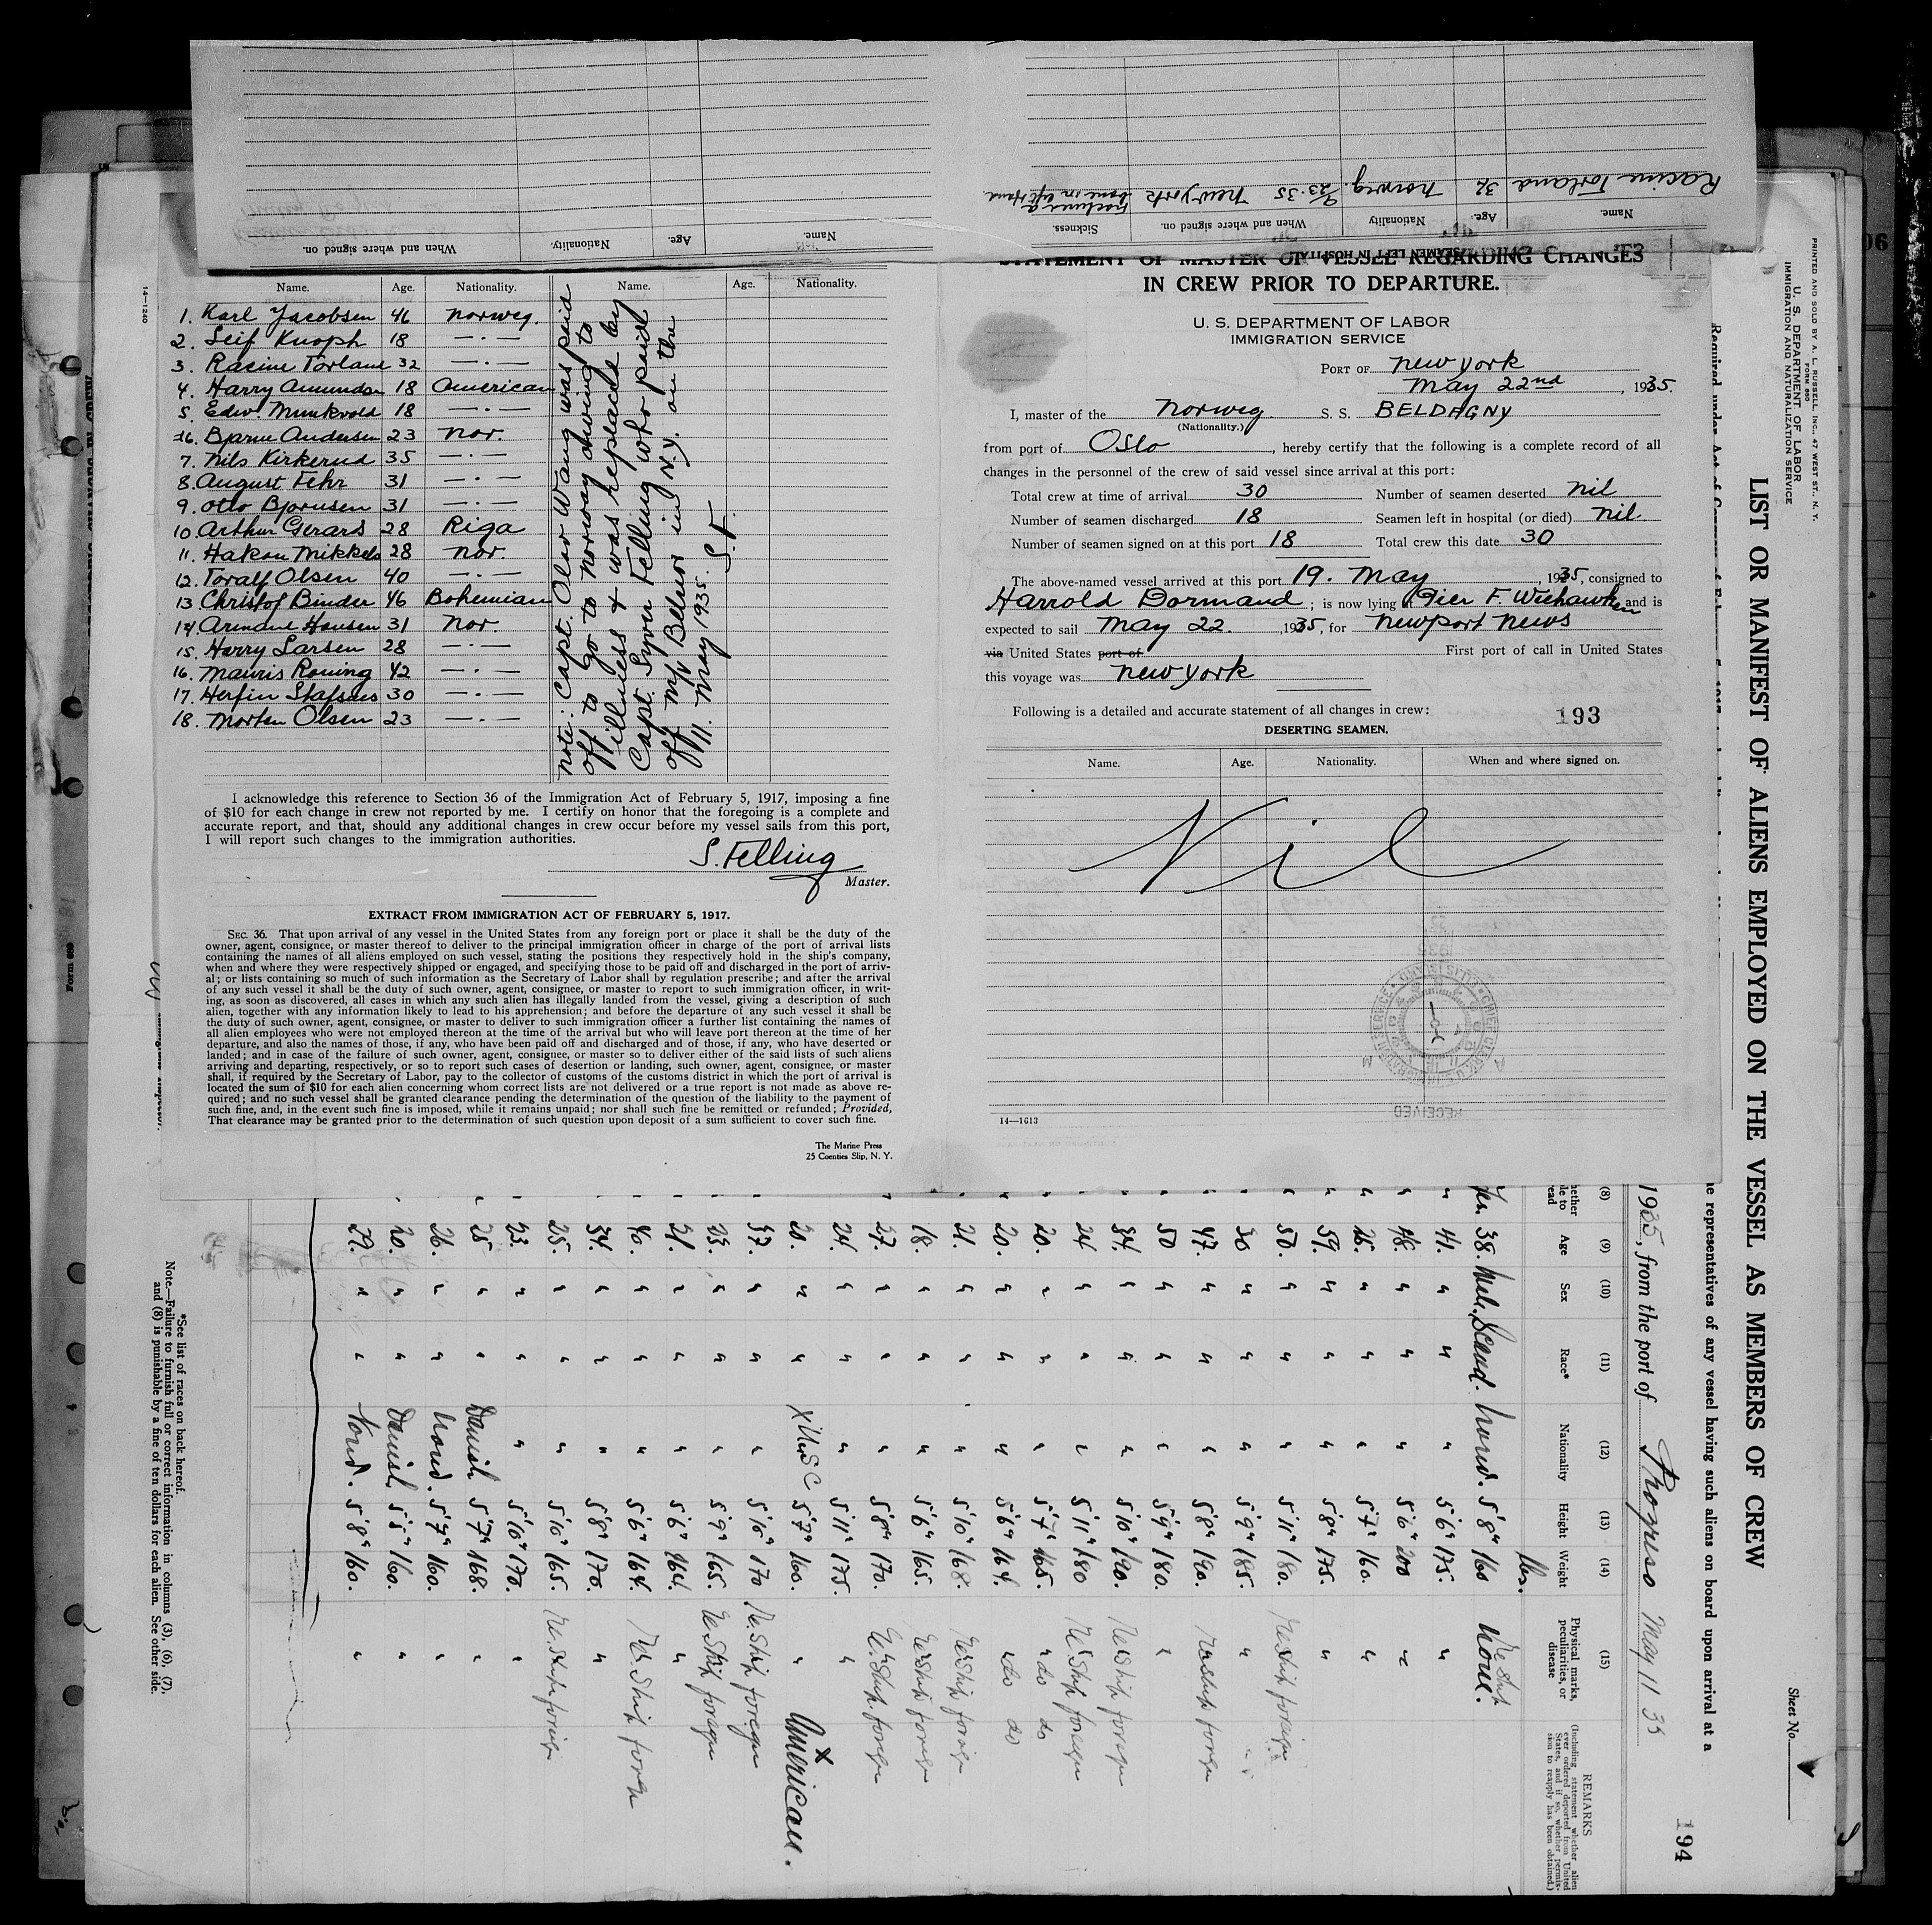 Name. Age. Nationality. When and where signed on.
SEAMEN LEFT IN HOSPITAL
Name. Age. Nationality. When and where signed on. Sickness.
Racine Torland 32 Norweg. 9/23-35 New York Fractured a bone in left Hand.
14—1240
Name. Age. Nationality. Name. Age. Nationality.
1. Karl Jacobsen 46 Norweg.
2. Leif Knoph 18 —·—
3. Racine Torland 32 —·—
4. Harry Amundsen 18 American
5. Edw. Munkvold 18 —·—
6. Bjarne Andersen 23 Nor.
7. Nils Kirkerud 35 —·—
8. August Fehr 31 —·—
9. Otto Bjornsen 31 —·—
10 Arthur Gerards 28 Riga
11. Hakon Mikkels 28 Nor.
12. Toralf Olsen 40 —·—
13 Christof Binder 46 Bohemian
14. Armand Hansen 31 Nor.
15. Harry Larsen 28 —·—
16. Mauris Roning 42 —·—
17. Herfin 30 —·—
18. Morten Olsen 23 —·—
Note: Capt. Olav Wang was paid
off to go to Norway owing to
illness & was replaced by
Capt. Syver Felling who paid
off M/S Belnor in N.Y. on the
11. May 1935. S.F.
I acknowledge this reference to Section 36 of the Immigration Act of February 5, 1917, imposing a fine
of $10 for each change in crew not reported by me. I certify on honor that the foregoing is a complete and
accurate report, and that, should any additional changes in crew occur before my vessel sails from this port,
I will report such changes to the immigration authorities.
S. Felling
Master.
EXTRACT FROM IMMIGRATION ACT OF FEBRUARY 5, 1917.
SEC. 36. That upon arrival of any vessel in the United States from any foreign port or place it shall be the duty of the
owner, agent, consignee, or master thereof to deliver to the principal immigration officer in charge of the port of arrival lists
containing the names of all aliens employed on such vessel, stating the positions they respectively hold in the ship's company,
when and where they were respectively shipped or engaged, and specifying those to be paid off and discharged in the port of arriv-
al; or lists containing so much of such information as the Secretary of Labor shall by regulation prescribe; and after the arrival
of any such vessel it shall be the duty of such owner, agent, consignee, or master to report to such immigration officer, in writ-
ing, as soon as discovered, all cases in which any such alien has illegally landed from the vessel, giving a description of such
alien, together with any information likely to lead to his apprehension; and before the departure of any such vessel it shall be
the duty of such owner, agent, consignee, or master to deliver to such immigration officer a further list containing the names of
all alien employees who were not employed thereon at the time of the arrival but who will leave port thereon at the time of her
departure, and also the names of those, if any, who have been paid off and discharged and of those, if any, who have deserted or
landed; and in case of the failure of such owner, agent, consignee, or master so to deliver either of the said lists of such aliens
arriving and departing, respectively, or so to report such cases of desertion or landing, such owner, agent, consignee, or master
shall, if required by the Secretary of Labor, pay to the collector of customs of the customs district in which the port of arrival is
located the sum of $10 for each alien concerning whom correct lists are not delivered or a true report is not made as above re-
quired; and no such vessel shall be granted clearance pending the determination of the question of the liability to the payment of
such fine, and, in the event such fine is imposed, while it remains unpaid; nor shall such fine be remitted or refunded; Provided,
That clearance may be granted prior to the determination of such question upon deposit of a sum sufficient to cover such fine.
The Marine Press
25 Coenties Slip, N. Y.
STATEMENT OF MASTER OF VESSEL REGARDING CHANGES
IN CREW PRIOR TO DEPARTURE.
U. S. DEPARTMENT OF LABOR
IMMIGRATION SERVICE
PORT OF New York
May 22nd, 1935.
I, master of the Norweg S. S. BELDAGNY
(Nationality.)
from port of Oslo, hereby certify that the following is a complete record of all
changes in the personnel of the crew of said vessel since arrival at this port:
Total crew at time of arrival 30 Number of seamen deserted Nil
Number of seamen discharged 18 Seamen left in hospital (or died) Nil
Number of seamen signed on at this port 18 Total crew this date 30
The above-named vessel arrived at this port 19. May, 1935, consigned to
Harrold Dormand; is now lying at Pier F. Weehawken and is
expected to sail May 22., 1935, for Newport News
via United States port of First port of call in United States
this voyage was New York
Following is a detailed and accurate statement of all changes in crew:
193
DESERTING SEAMEN.
Name. Age. Nationality. When and where signed on.
Nil
RECEIVED
14—1613
PRINTED AND SOLD BY A. L. RUSSELL, INC., 47 WEST ST., N. Y.
FORM 680
U. S. DEPARTMENT OF LABOR
IMMIGRATION AND NATURALIZATION SERVICE
Sheet No.
LIST OR MANIFEST OF ALIENS EMPLOYED ON THE VESSEL AS MEMBERS OF CREW
194
representatives of any vessel having such aliens on board upon arrival at a
1935, from the port of Progreso May 11 35
(8) (9) (10) (11) (12) (13) (14) (15)
Age Sex Race* Nationality Height Weight Physical marks, peculiarities, or disease
REMARKS
(Including statement whether alien ever ordered deported from United States, and if so, whether permission to reapply has been obtained.)
lbs.
Yes. 38. Male. Scand. Norw. 5'8" 160 None. Re Ship
" 41. " " " 5'6" 175. "
" 48. " " " 5'6" 200 "
" 26. " " " 5'7" 160. "
" 59. " " " 5'8" 175. "
" 50. " " " 5'11" 180. Re Ship foreign
" 30 " " " 5'9" 185. "
" 47. " " " 5'8" 180. Reship foreign
" 50 " " " 5'9" 180. "
" 34. " " " 5'10" 190. Re Ship foreign
" 24 " " " 5'11" 180 Re Ship foreign
" 20. " " " 5'7" 165. " do do
" 20. " " " 5'6" 164. do do
" 21. " " " 5'10" 168. Re Ship foreign
" 18. " " " 5'6" 165. Re Ship foreign
" 27. " " " 5'8" 170. Re Ship foreign
" 24. " " " 5'11" 175. "
" 20. " " X USC 5'7" 160. " X American.
" 37. " " " 5'10" 170 Re. Ship foreign
" 23. " " " 5'9" 165. Re Ship foreign
" 21. " " " 5'6" 164. "
" 40. " " " 5'6" 164. Re. Ship foreign
" 34. " " " 5'8" 170. "
" 25. " " " 5'10" 165. Re. Ship foreign
" 23. " " " 5'10" 170. "
" 25 " " Danish 5'7" 168. "
" 26. " " Norw. 5'9" 160. "
" 20. " " Danish 5'5" 160. "
29. " " Norw. 5'8" 160. "
*See list of races on back hereof.
Note.—Failure to furnish full or correct information in columns (3), (6), (7),
and (8) is punishable by a fine of ten dollars for each alien. See other side.